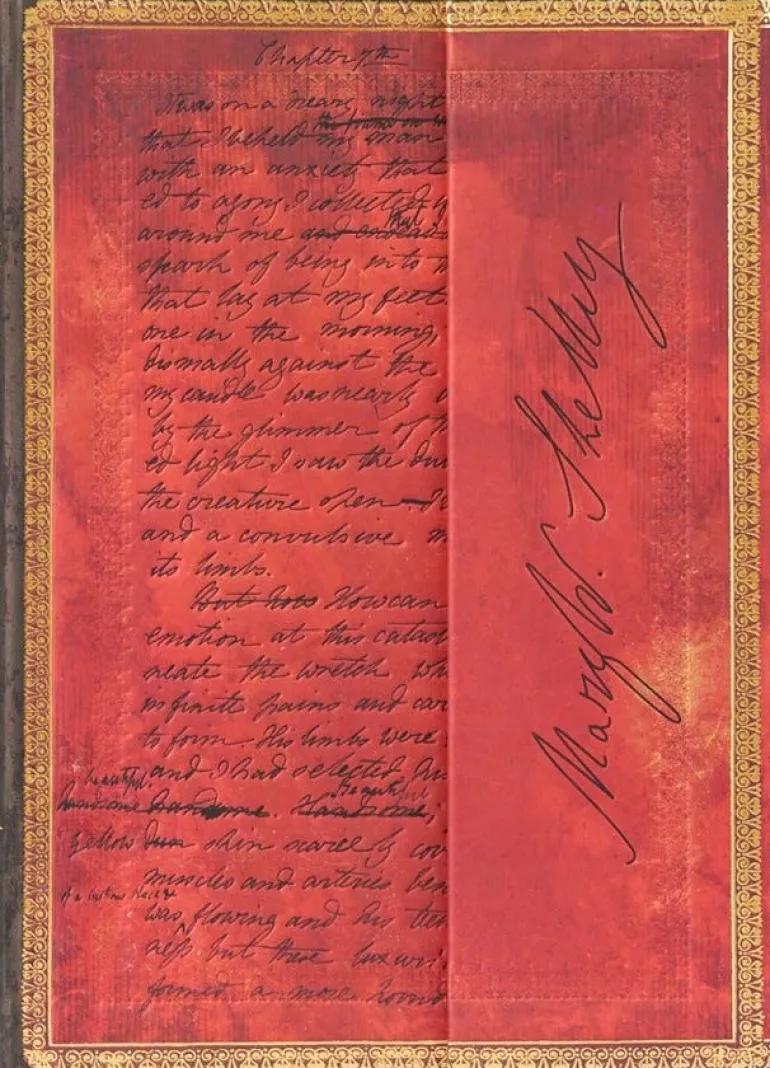 Chapter 7th
It was on a dreary night
that I beheld my man
with an anxiety that
ed to agony I collected
around me and endeav that
spark of being into
that lay at my feet.
one in the morning,
dismally against the
my candle was nearly
by the glimmer of
ed light I saw the dul
the creature open
and a convulsive m
its limbs.
But how How can
emotion at this catas
neate the wretch wh
infinite pains and car
to form. His limbs were
and I had selected his
beautiful. beautiful
handsome handsome. Handsome,
yellow dun skin scarcely cov
muscles and arteries ben
of a lustrous black &
was flowing and his tee
ness but these luxuri
formed a more horrid
Mary W. Shelley